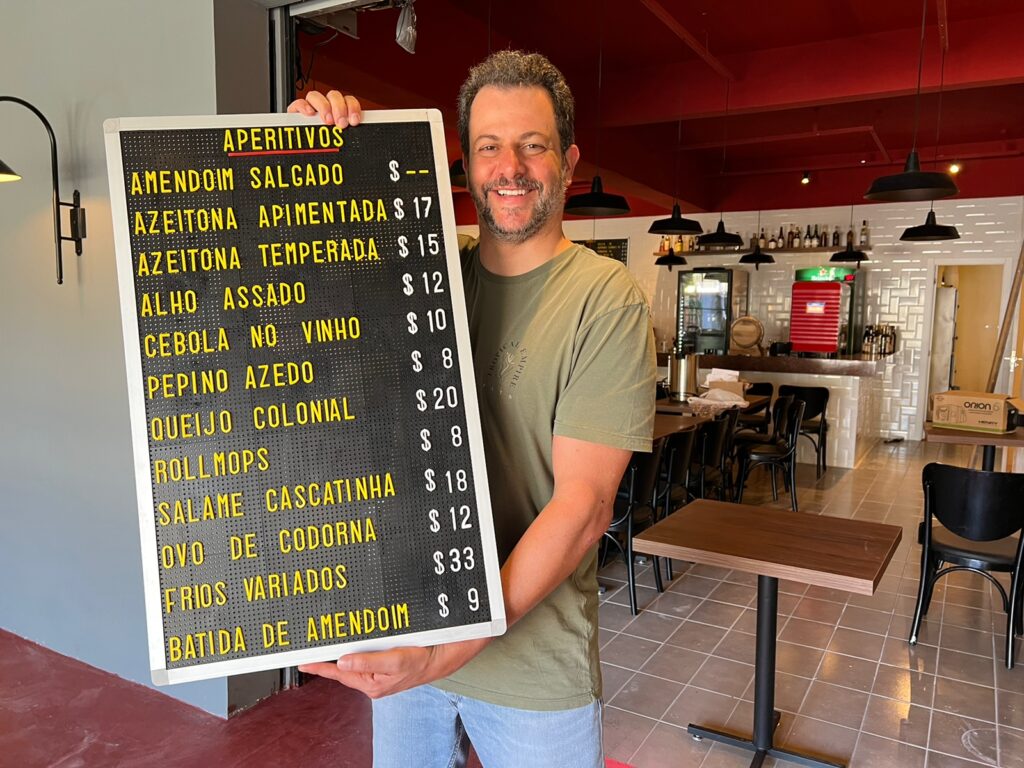 APERITIVOS
AMENDOIM SALGADO $--
AZEITONA APIMENTADA $17
AZEITONA TEMPERADA $15
ALHO ASSADO $12
CEBOLA NO VINHO $10
PEPINO AZEDO $8
QUEIJO COLONIAL $20
ROLLMOPS $8
SALAME CASCATINHA $18
OVO DE CODORNA $12
FRIOS VARIADOS $33
BATIDA DE AMENDOIM $9
TROPICAL EMPIRE
ORION